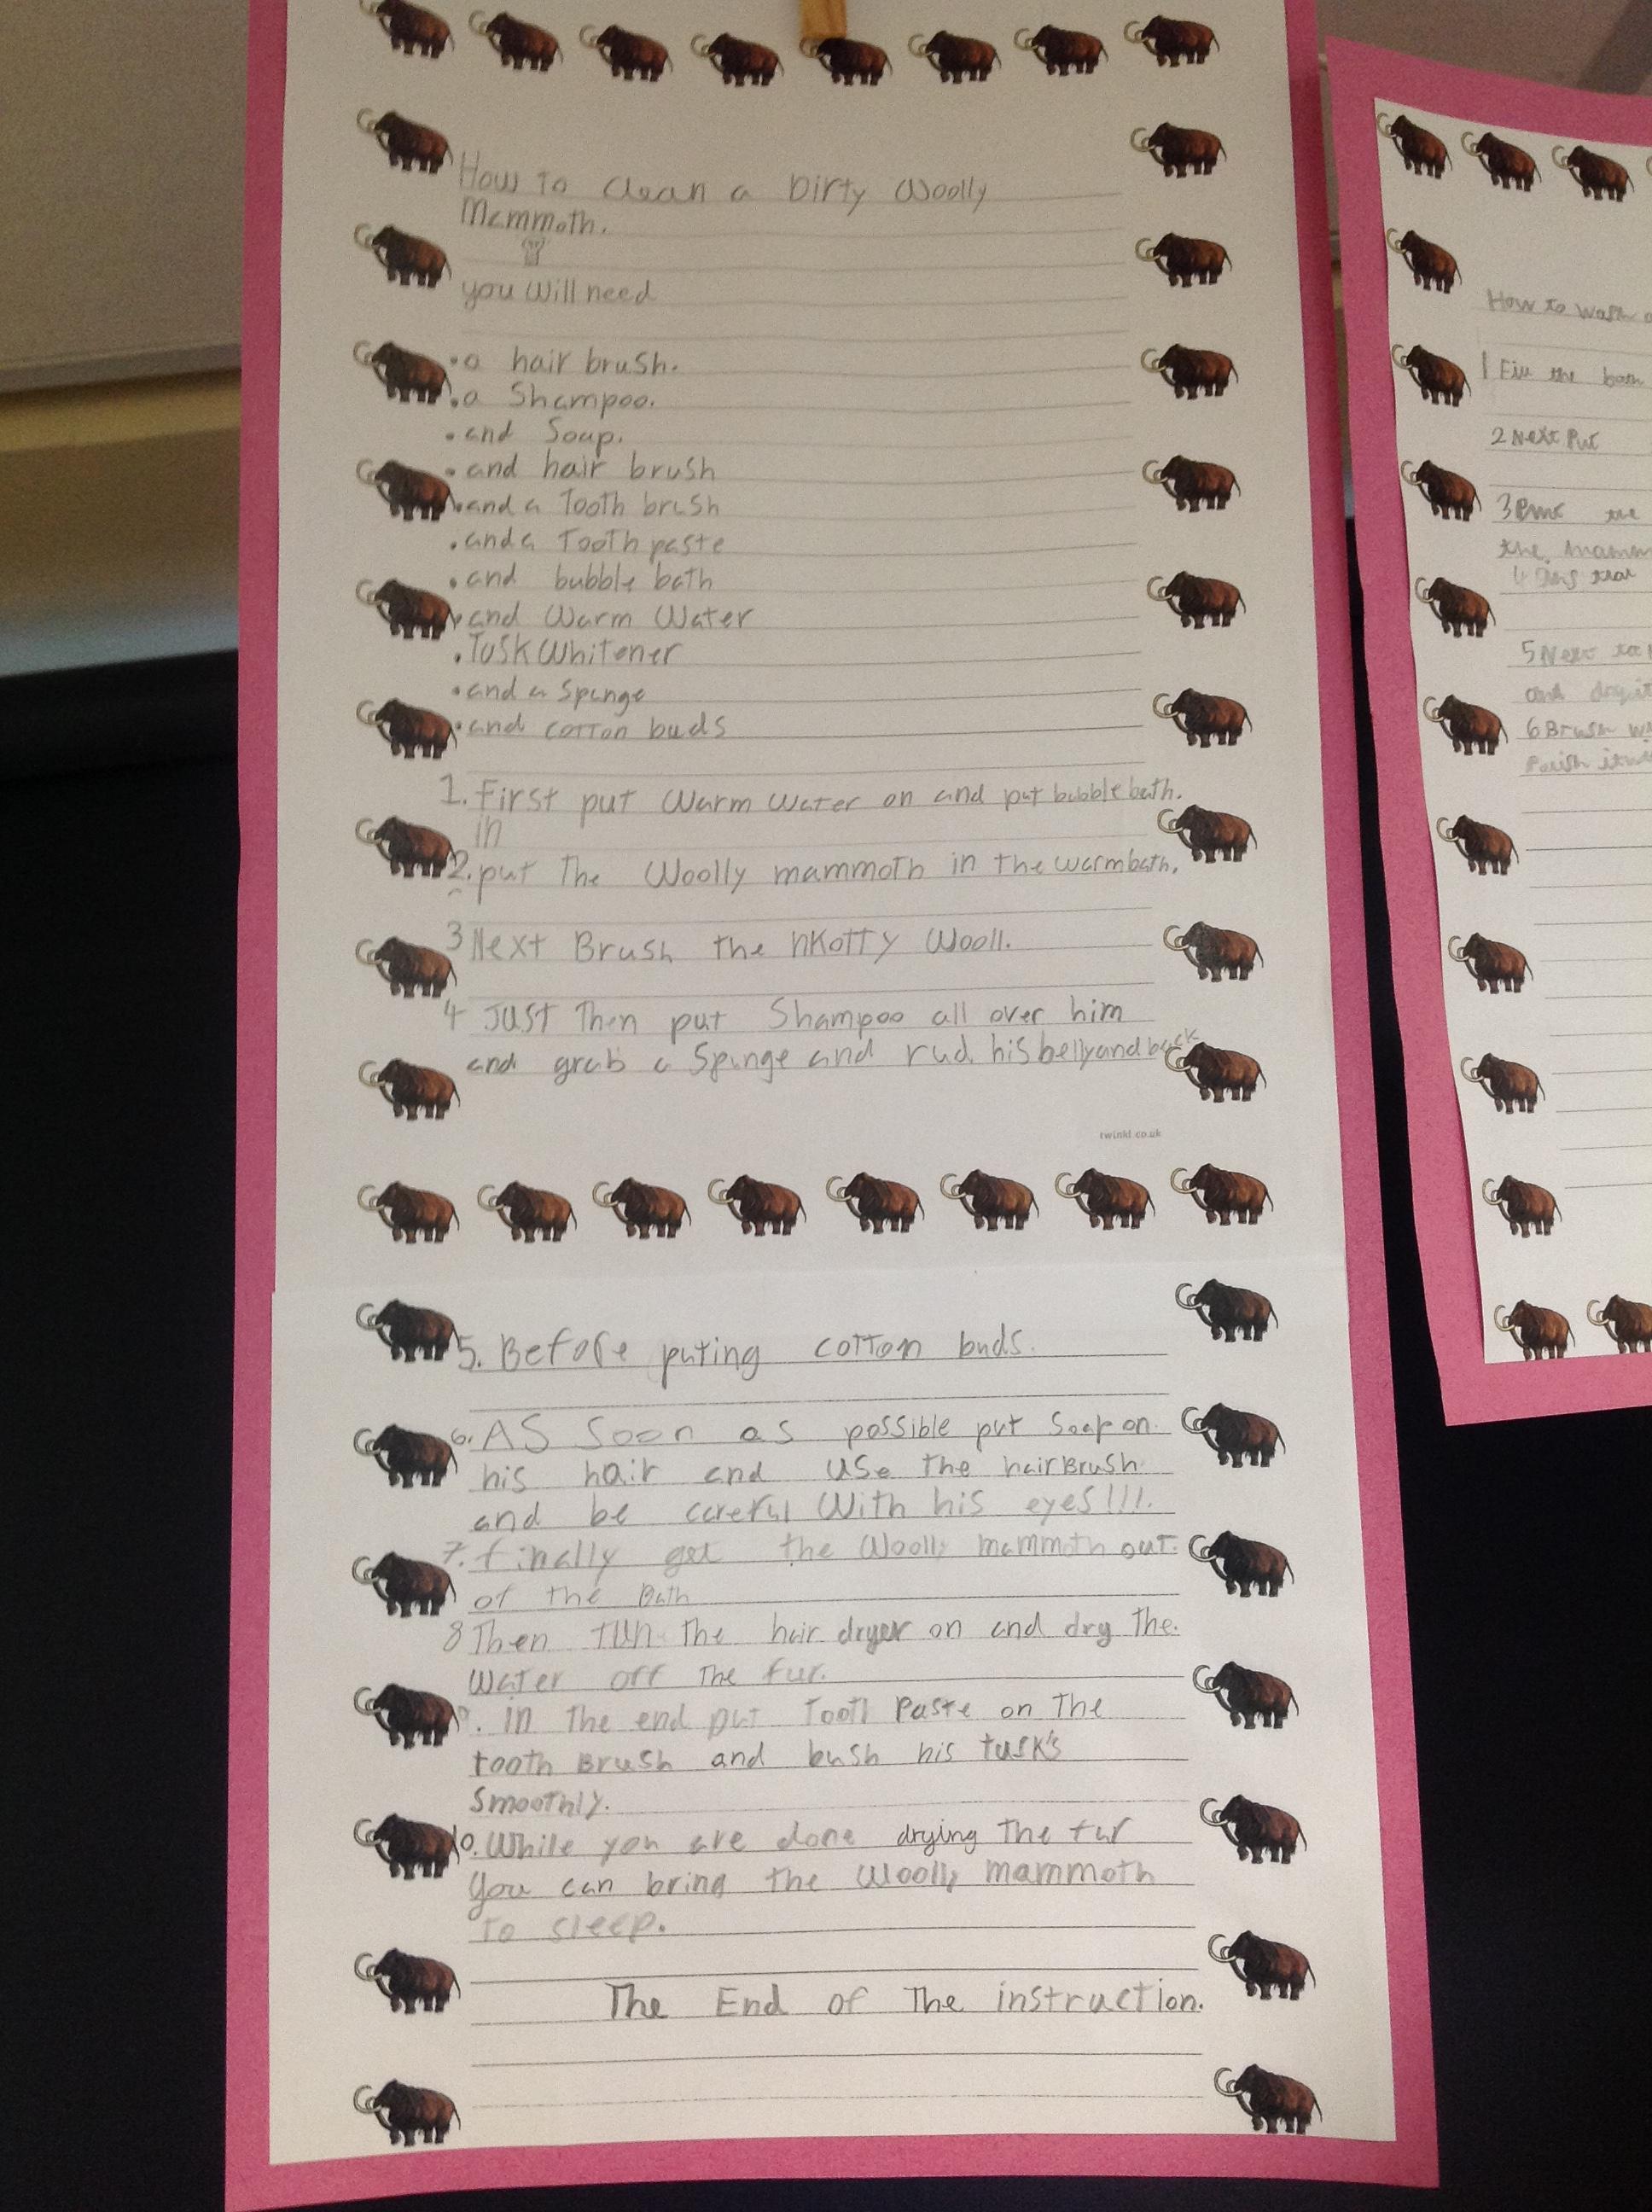 How To Clean a Dirty Woolly
Mammoth.
you Will need
• a hair brush.
• a Shampoo.
• and Soup.
• and hair brush
• and a Tooth brush
• and a Tooth paste
• and bubble bath
• and Warm Water
• Tusk Whitener
• and a Spunge
• and cotton buds
1. First put Warm Water on and put bubble bath.
in
2. put The Woolly mammoth in the warm bath.
3 Next Brush the nkotty Wooll.
4 JUST Then put Shampoo all over him
and grab a Spunge and rud his belly and back
twinkl.co.uk
5. Before puting cotton buds.
6. AS Soon as possible put Soap on
his hair and use the hair Brush
and be careful With his eyes!!!.
7. finally get the Woolly mammoth out
of the Bath
8 Then turn the hair dryer on and dry The
Water off The fur.
. in The end put Tooth Paste on The
tooth Brush and bush his tusk's
Smoothly.
10. While you are done drying The fur
You can bring the Woolly mammoth
To sleep.
The End of The instruction.
How to wash
1 the bath
2 Next Put
3 the
the
4
5 Next
and
6 Brush